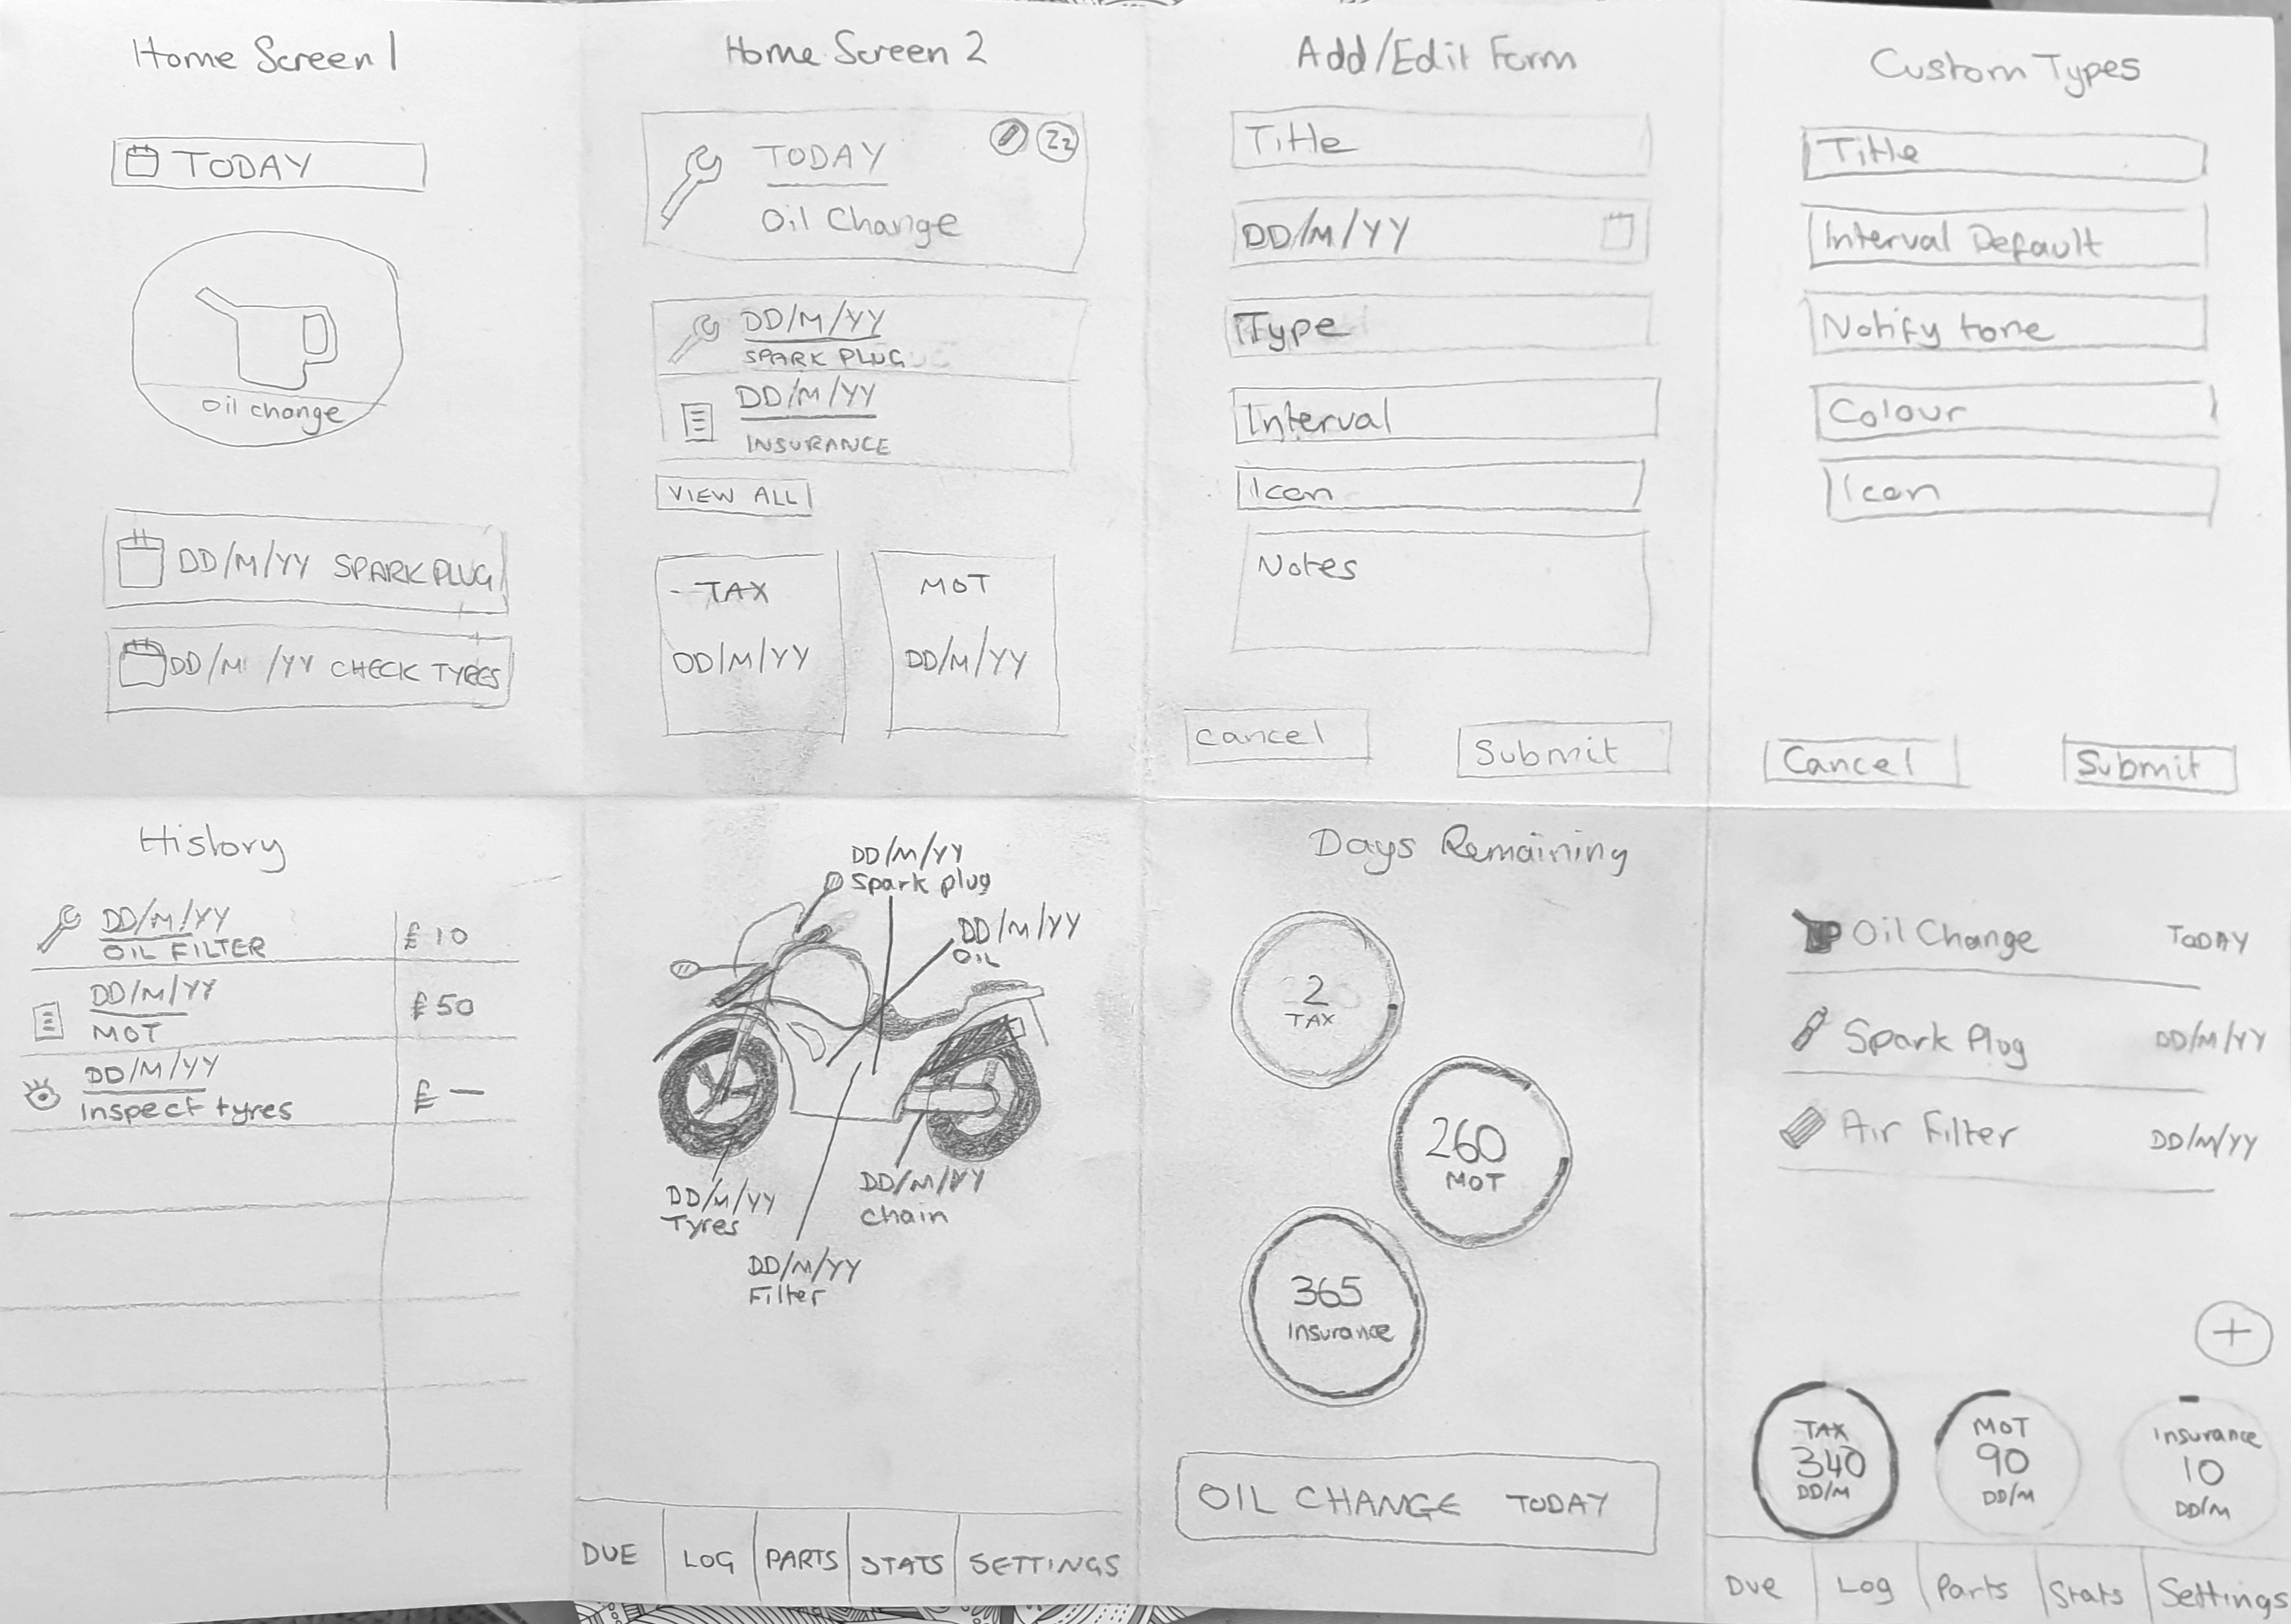 Home Screen 1
TODAY
Oil change
DD/M/YY SPARK PLUG
DD/M/YY CHECK TYRES
Home Screen 2
TODAY
Zz
Oil Change
DD/M/YY
SPARK PLUG
DD/M/YY
INSURANCE
VIEW ALL
TAX
DD/M/YY
MOT
DD/M/YY
Add/Edit Form
Title
DD/M/YY
Type
Interval
Icon
Notes
Cancel
Submit
Custom Types
Title
Interval Default
Notify tone
Colour
Icon
Cancel
Submit
History
DD/M/YY
OIL FILTER
£10
DD/M/YY
MOT
£50
DD/M/YY
Inspect tyres
£ —
DD/M/YY
Spark plug
DD/M/YY
OIL
DD/M/YY
Tyres
DD/M/YY
Chain
DD/M/YY
Filter
DUE
LOG
PARTS
STATS
SETTINGS
Days Remaining
2
TAX
260
MOT
365
Insurance
OIL CHANGE TODAY
Oil Change TODAY
Spark Plug DD/M/YY
Air Filter DD/M/YY
+
TAX
340
DD/M
MOT
90
DD/M
Insurance
10
DD/M
Due
Log
Parts
Stats
Settings